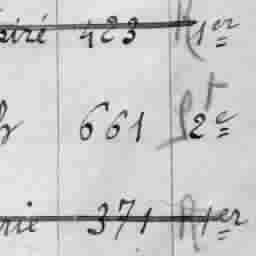 piré 423 R 1er
661 2e
rie 371 R 1er